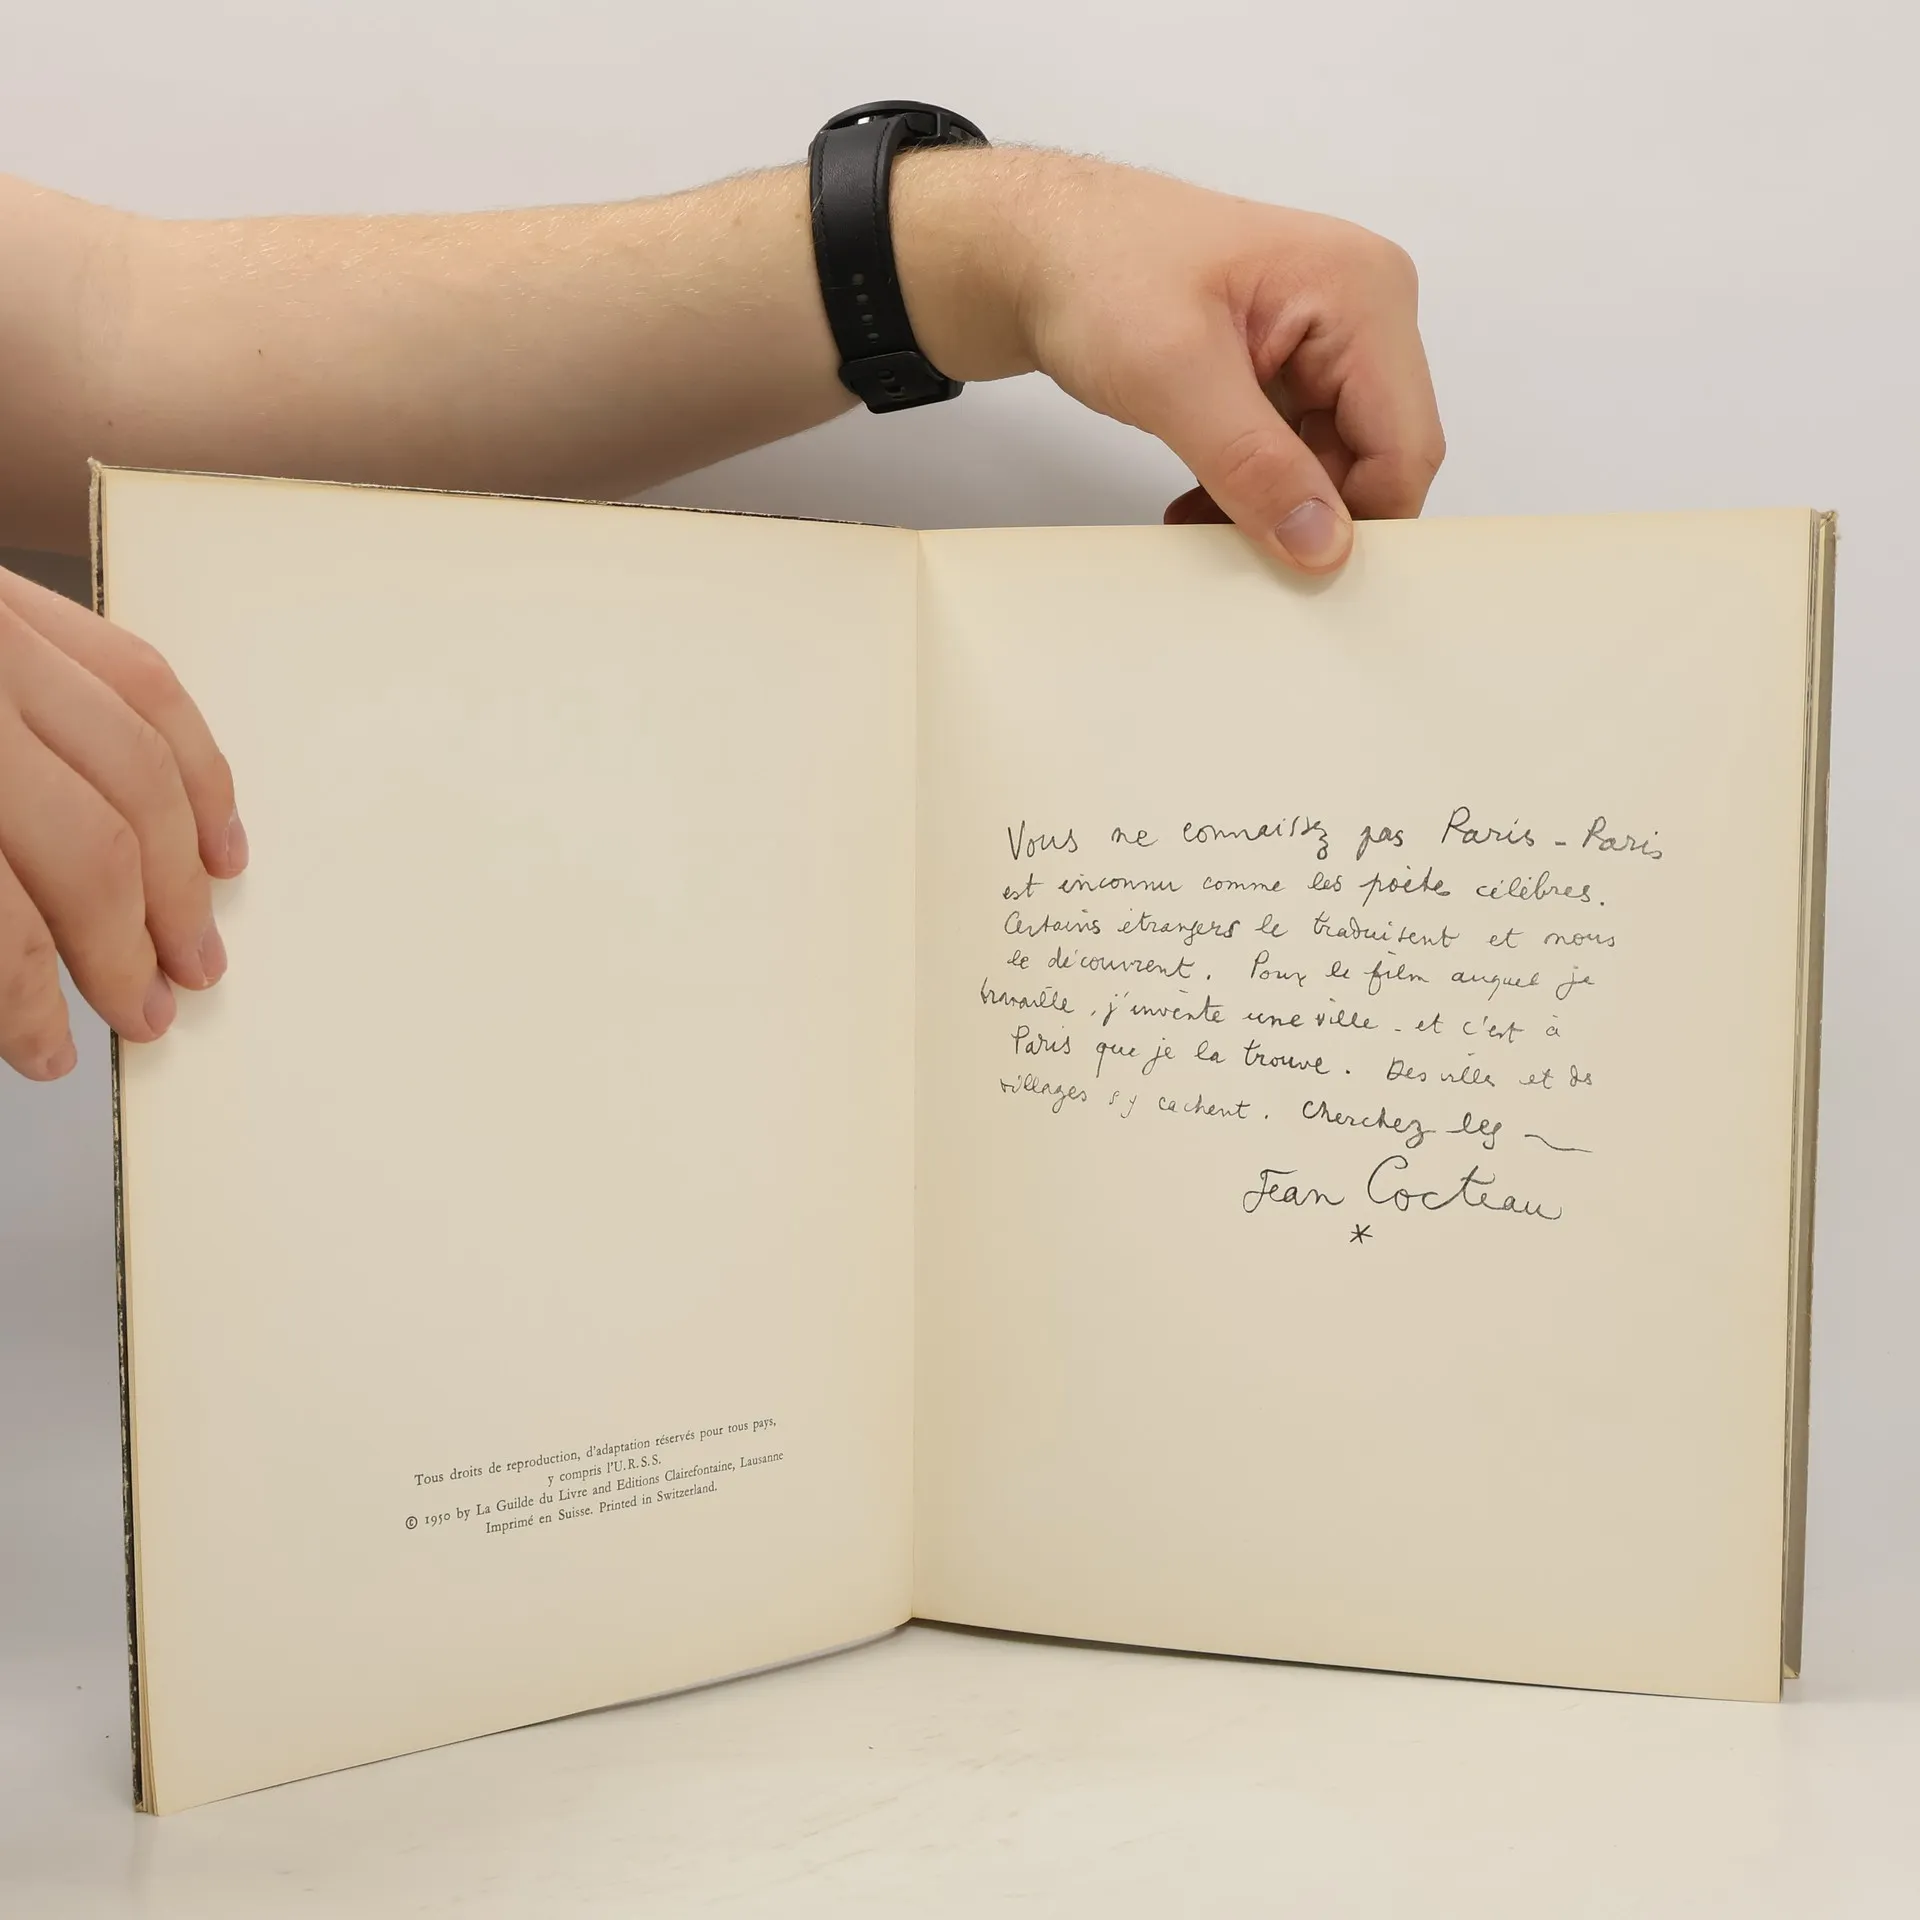 Tous droits de reproduction, d'adaptation réservés pour tous pays,
y compris l'U.R.S.S.
© 1950 by La Guilde du Livre and Editions Clairefontaine, Lausanne
Imprimé en Suisse. Printed in Switzerland.
Vous ne connaissez pas Paris - Paris
est inconnu comme les poètes célèbres.
Certains étrangers le traduisent et nous
le découvrent. Pour le film auquel je
travaille, j'invente une ville - et c'est à
Paris que je la trouve. Des villes et des
villages s'y cachent. Cherchez les ~
Jean Cocteau
*